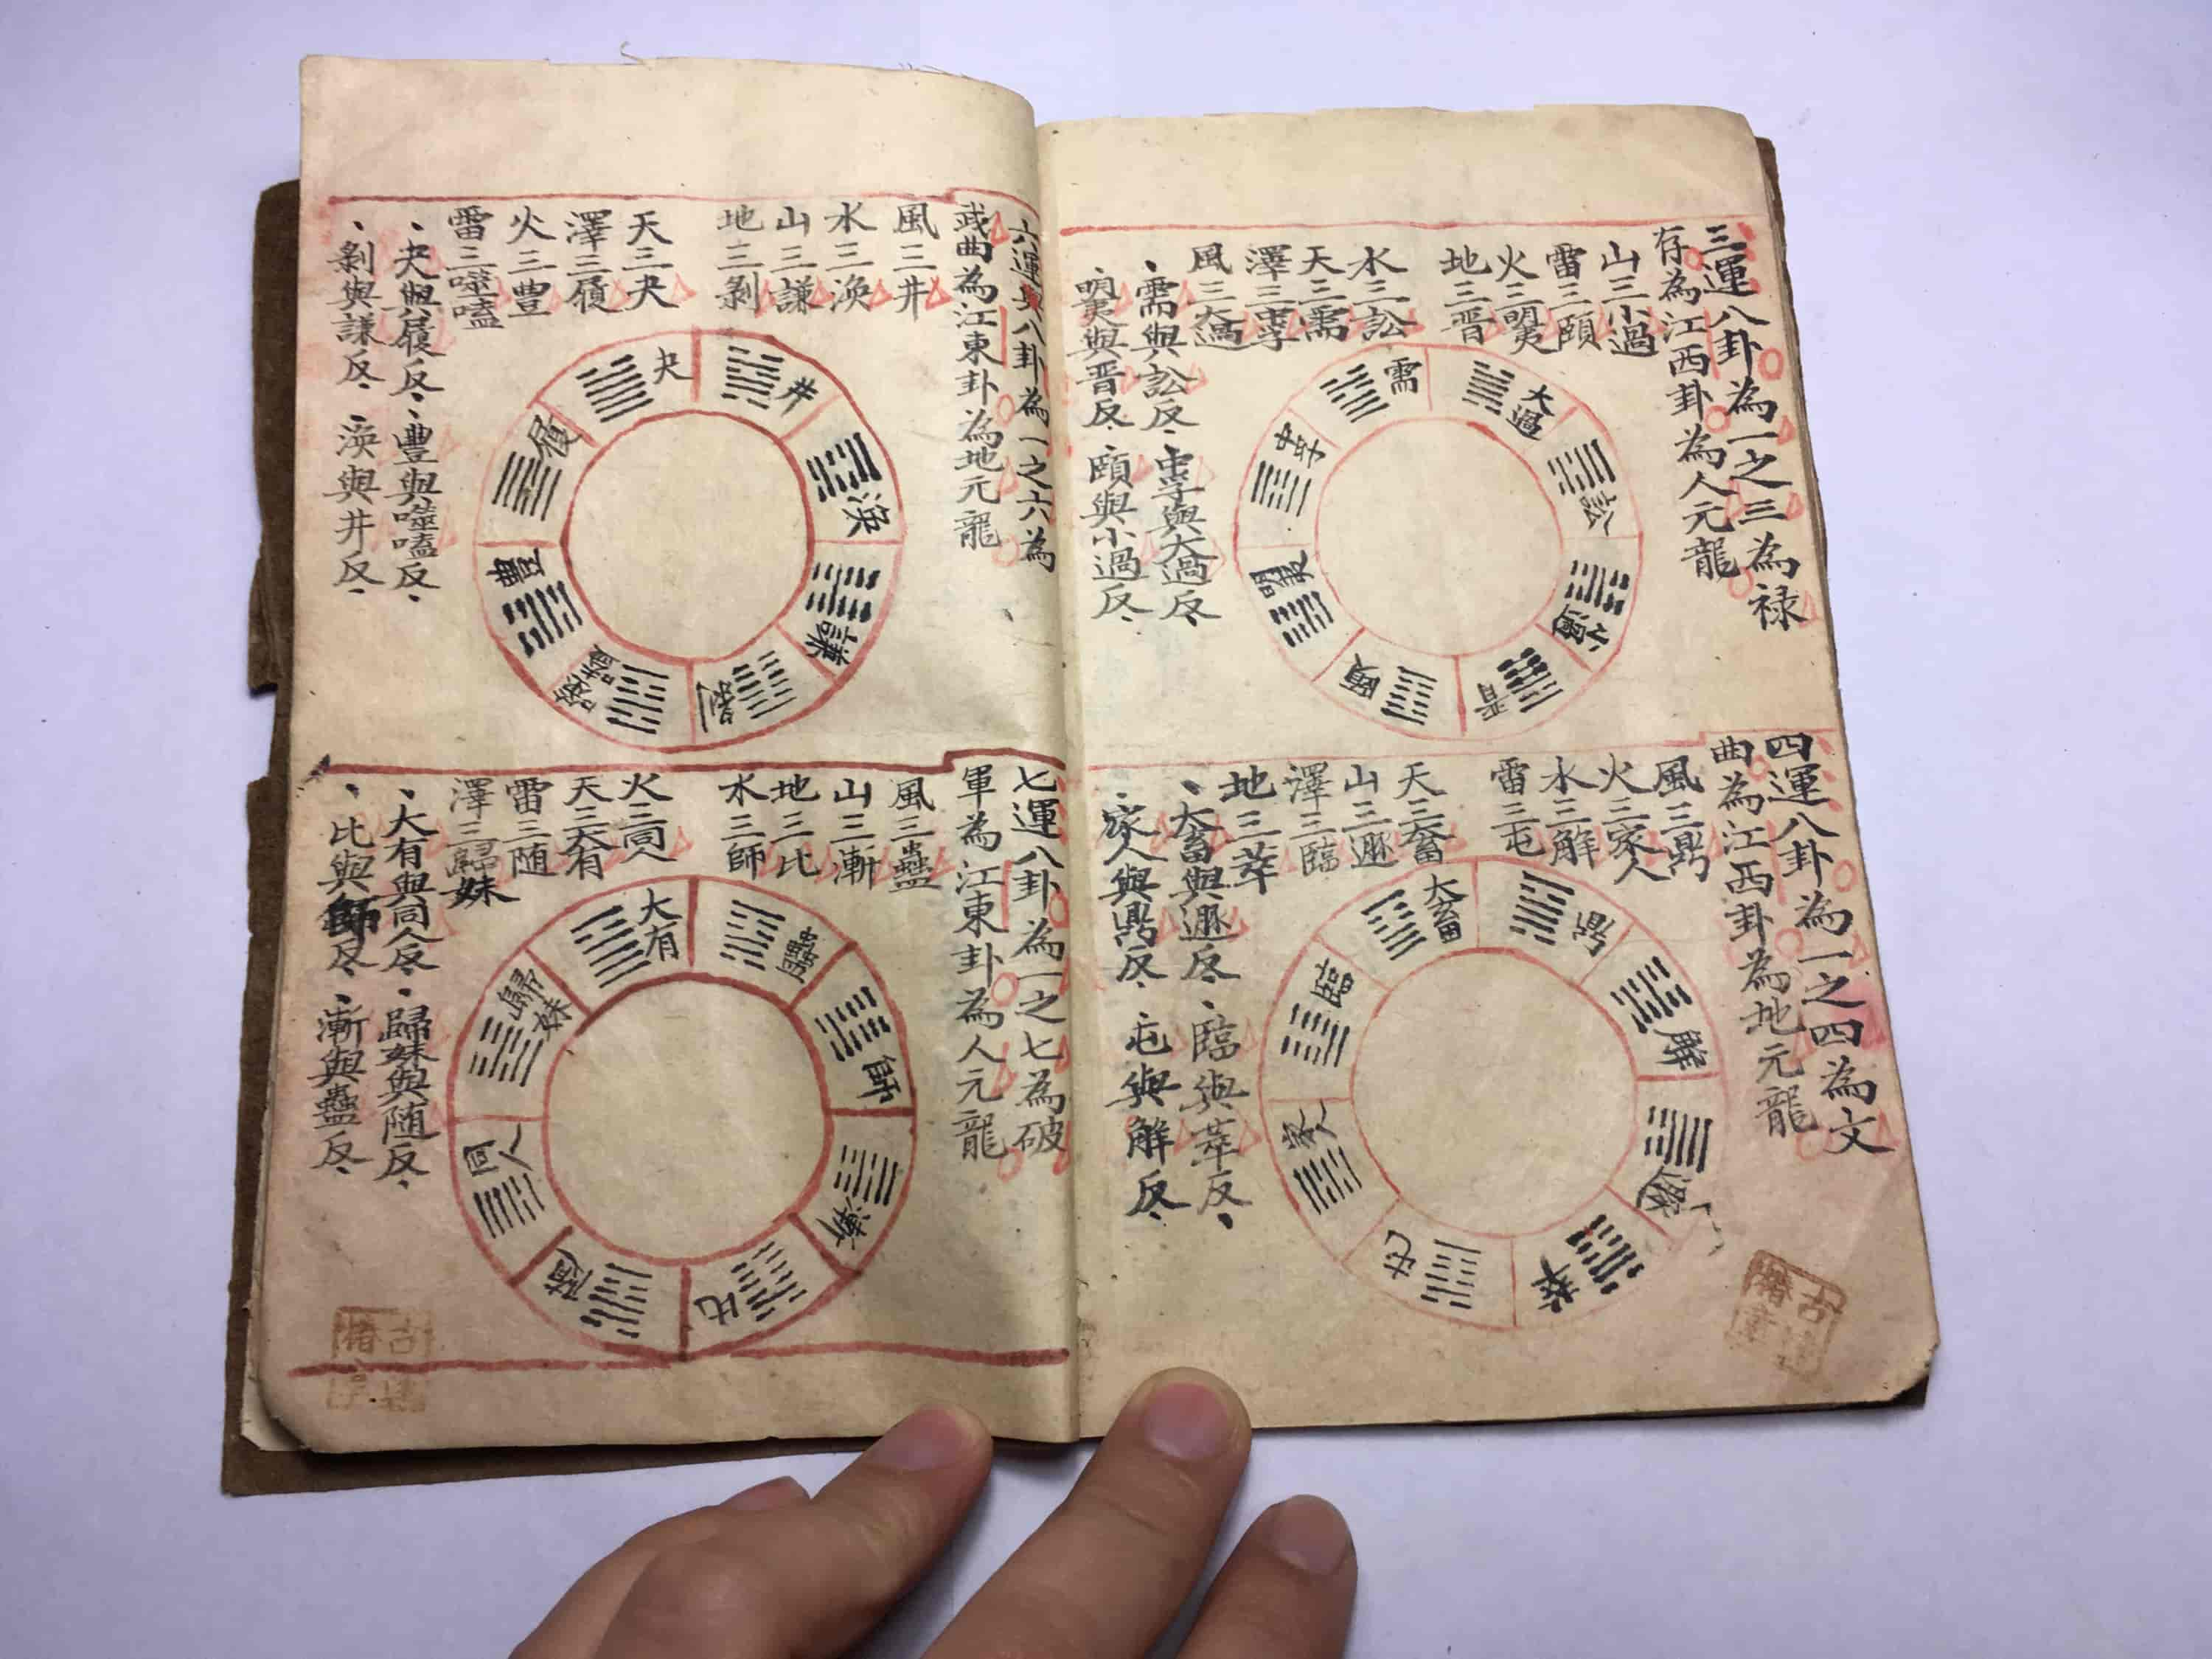 三運八卦為一之三為祿
存為江西卦為人元龍
山三小過
雷三頤
火三明夷
地三晋
水三訟
天三需
澤三中孚
風三大過
、需與訟反、中孚與大過反
明夷與晋反、頤與小過反、
需
大過
訟
小過
晋
頤
明夷
中孚
四運八卦為一之四為文
曲為江西卦為地元龍
風三鼎
火三家人
水三解
雷三屯
天三大畜
山三遯
澤三臨
地三萃
、大畜與遯反、臨與萃反、
、家人與鼎反、屯與解反、
大畜
鼎
解
遯
萃
屯
家人
臨
六運八卦為一之六為
武曲為江東卦為地元龍
風三井
水三渙
山三謙
地三剝
天三夬
澤三履
火三豊
雷三噬嗑
、夬與履反、豊與噬嗑反、
、剝與謙反、渙與井反、
夬
井
渙
謙
剝
噬嗑
豊
履
七運八卦為一之七為破
軍為江東卦為人元龍
風三蠱
山三漸
地三比
水三師
火三同人
天三大有
雷三随
澤三歸妹
、大有與同人反、歸妹與随反、
、比與師反、漸與蠱反、
大有
蠱
師
漸
比
随
同人
歸妹